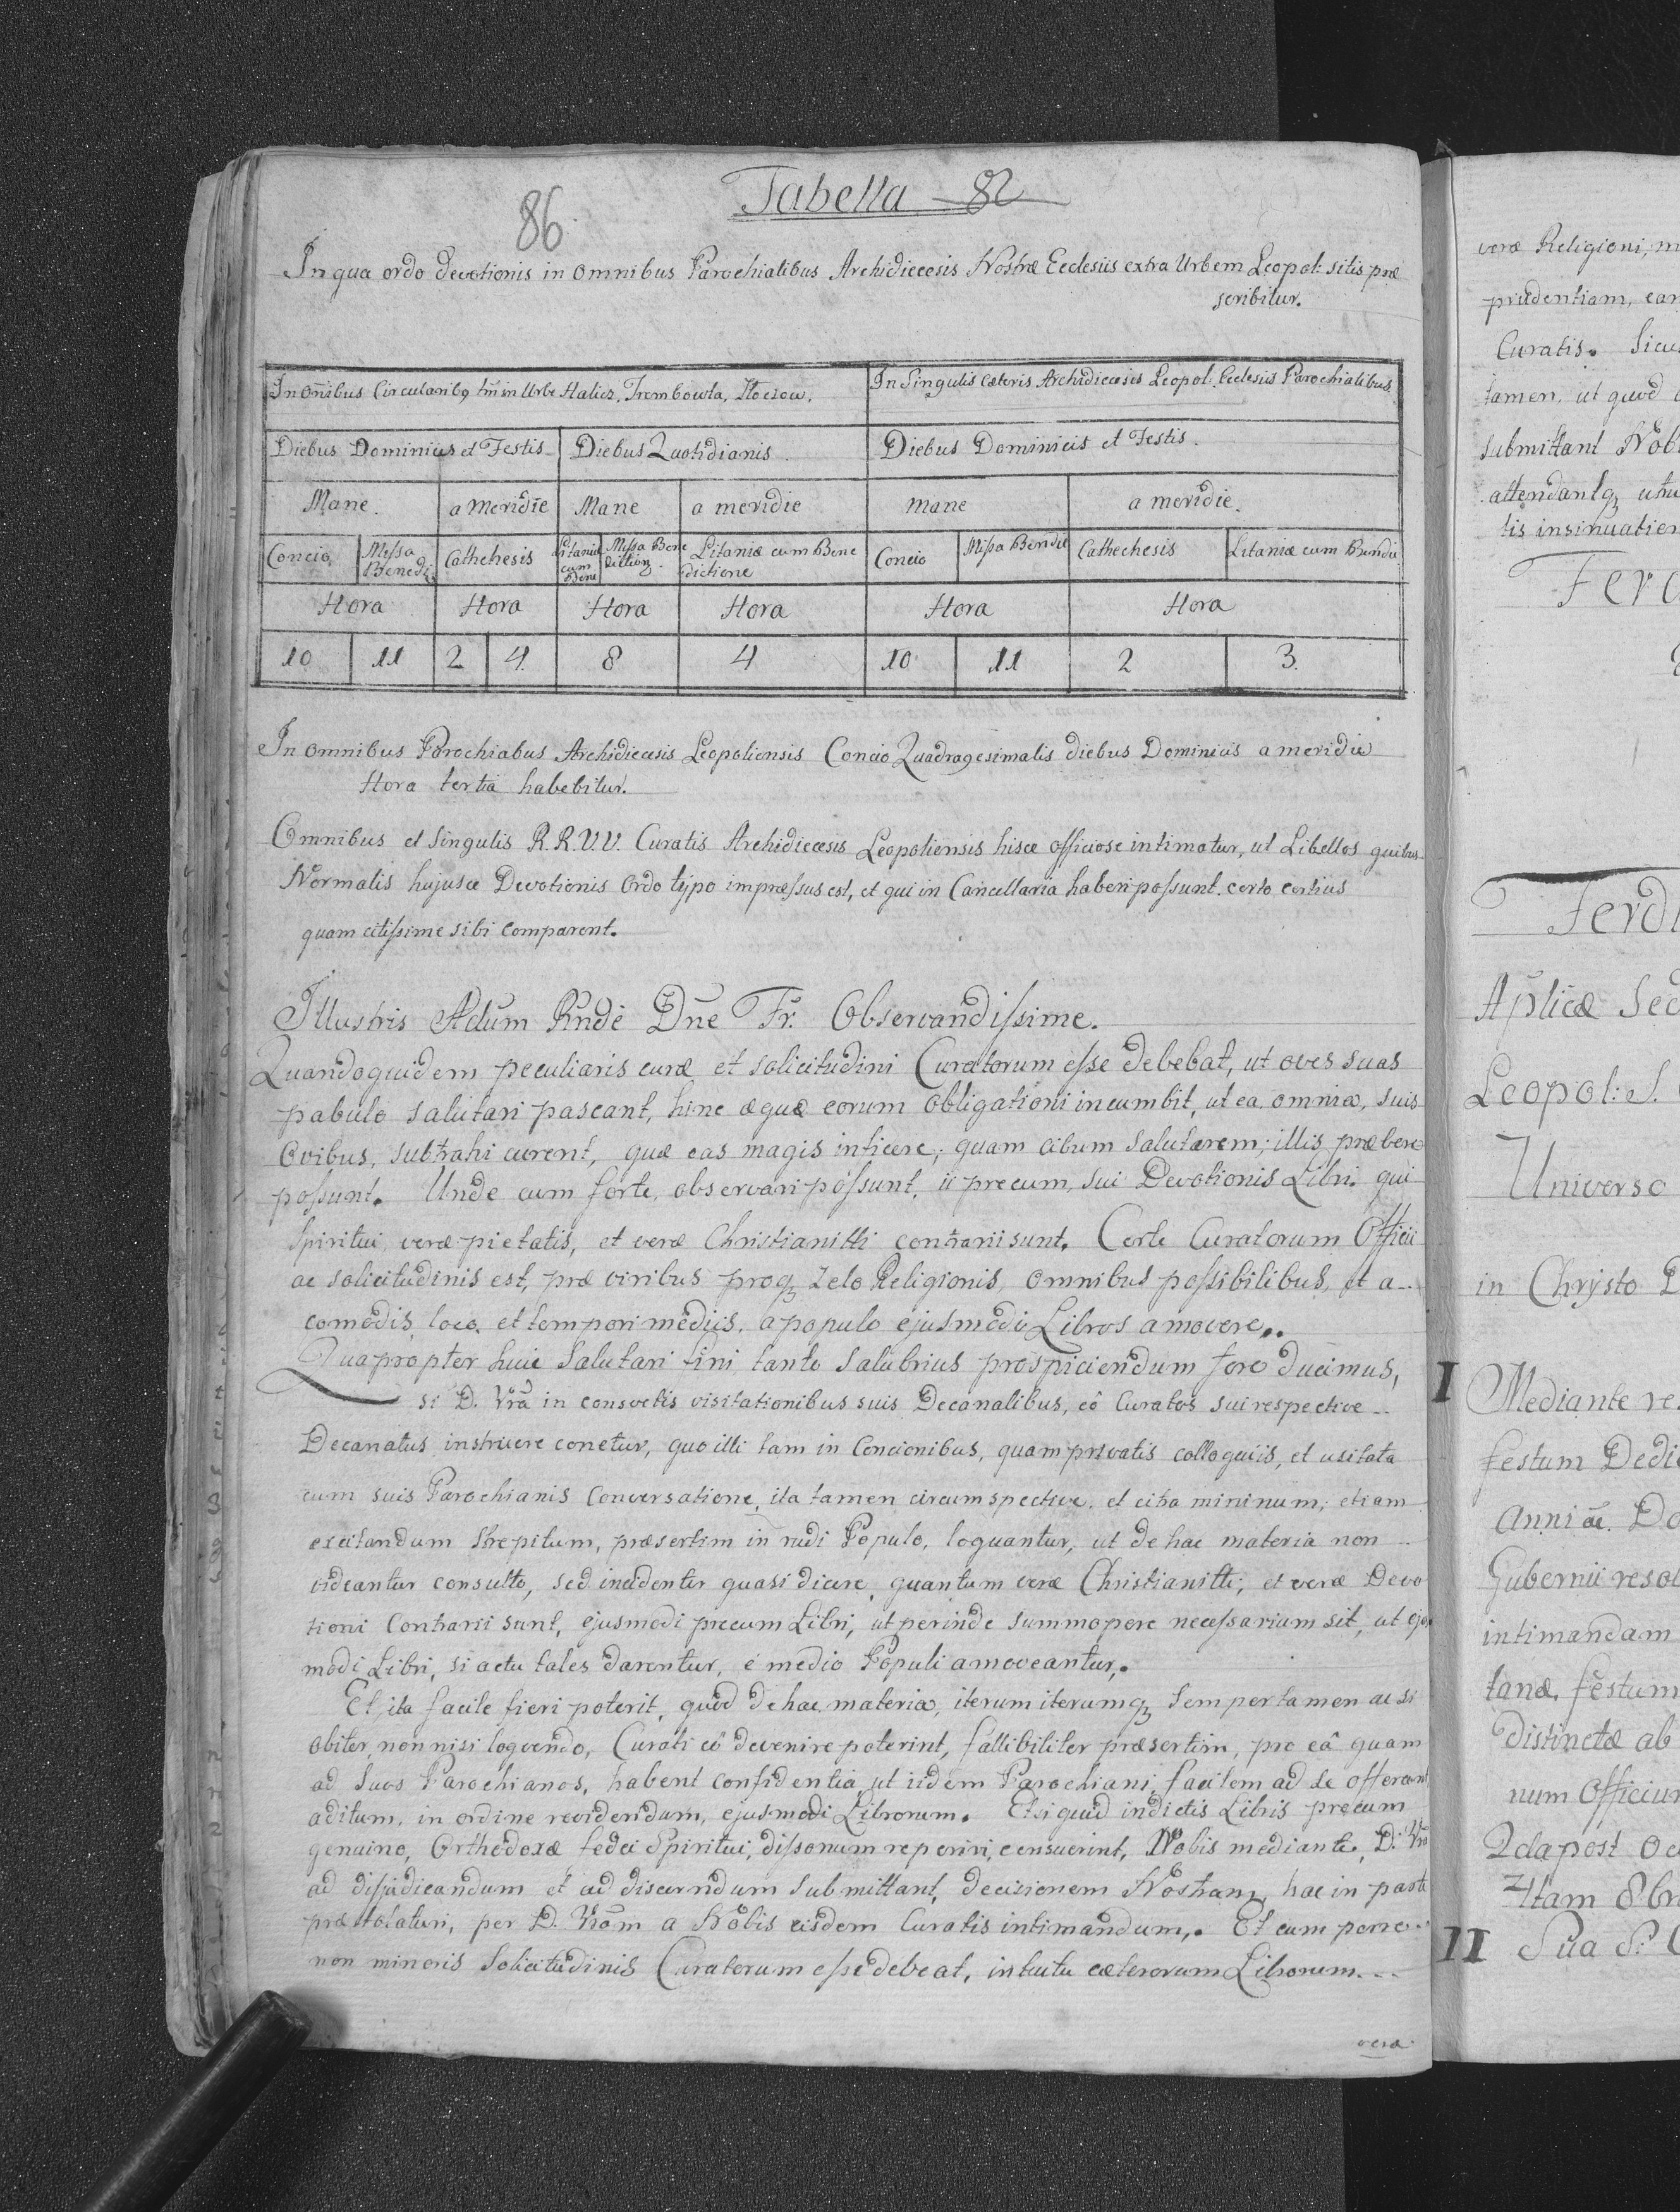 Tabella 82
86
In qua ordo devotionis in omnibus Parochialibus Archidiecesis Nostræ Ecclesiis extra Urbem Leopol: sitis præ
scribitur.
In Oñibus Circularibq tm̃ in Urbe Halicz, Trembowla, Zloczow.
In Singulis cæteris Archidiecesis Leopol: Ecclesiis Parochialibus
Diebus Dominicis et Festis
Diebus Quotidianis.
Diebus Dominicis et Festis.
Mane.
a Meridie
Mane
a meridie
mane
a meridie.
Concio
Missa Benedi
Cathehesis
Litaniæ cum Bene
Missa Bene diction
Litaniæ cum Bene dictione
Concio
Missa Bendic
Cathechesis
Litaniæ cum Bendic
Hora
Hora
Hora
Hora
Hora
Hora
10 11 2 4 8 4 10 11 2 3
In omnibus Parochiabus Archidiecesis Leopoliensis Concio Quadragesimalis diebus Dominicis a meridie
Hora tertia habebitur.
Omnibus et Singulis R.R.V.V. Curatis Archidiecesis Leopoliensis hisce officiose intimatur, ut Libellos quibus
Normalis hujusce Devotionis Ordo typo impræssus est, et qui in Cancellaria haberi possunt. certo certius
quam citissime sibi comparent.
Illustris Adum Rnde Dne Fr. Observandissime.
Quandoquidem peculiaris curæ et solicitudini Curatorum esse debebat, ut oves suas
pabulo salutari pascant, hinc æquæ eorum obligationi incumbit, ut ea omnia, suis
Ovibus, subtrahi curent, quæ eas magis inficere, quam cibum salutarem, illis præbere
possunt. Unde cum forte, observari possunt, ii precum, sui Devotionis Libri qui
Spiritui, veræ pietatis, et veræ Christianitti contrarii sunt. Certe Curatorum Officii
ac solicitudinis est, præ viribus proq zelo Religionis, omnibus possibilibus, et a
comodis, loco, et tempori mediis, a populo ejusmodi Libros amovere..
Quapropter huic Salutari fini tanto salubrius prospiciendum fore ducimus,
si D. Vrã in consvetis visitationibus suis Decanalibus, eô Curatos sui respective
Decanatus instruere conetur, quo illi tam in Concionibus, quam privatis colloquiis, et usitata
cum suis Parochianis Conversatione, ita tamen circumspective, et citra mininum, etiam
excitandum strepitum, præsertim in rudi Populo, loquantur, ut de hac materia non
videantur consulto, sed incidenter quasi dicere, quantum veræ Christianitti, et veræ Devo
tioni Contrarii sunt, ejusmodi precum Libri, ut perinde summopere necessariam sit, ut ejus
modi Libri, si actu tales darentur, é medio Populi amoveantur.
Et ita facile fieri poterit, quod de hac materia, iterum iterumq semper tamen ac si
obiter, non nisi loqvendo, Curati eô devenire poterint, fallibiliter præsertim, pro eâ quam
ad suos Parochianos, habent confidentia, ut iidem Parochiani, facilem ad se offerant
aditum, in ordine revidendum, ejusmodi Librorum. Et si quid in dictis Libris precum
genuino, Orthodoxæ fedei Spiritui, dissonum reperiri, censuerint, Nobis mediante, D. Vrã
ad disjudicandum et ad discerndum submittant, decisionem Nostram, hac in parte
præstolaturi, per D. Vrãm a Nobis eisdem Curatis intimandum. Et cum porro
non minoris Solicitudinis Curatorum esse debeat, intuitu cæterorum Librorum...
vera
veræ Religioni, m
prudentiam, ear
Curatis. Sicu
tamen, ut quod
submittant Nob
attendantq utru
tis insinuation
Fer
Ferdi
Aplicæ Sed
Leopol: S.
Universo
in Chrysto
I Mediante re
festum Dedi
Anni ac. Do
Gubernii resol
intimandam
tanæ, festum
distinctæ ab
num Officiu
2da post Oc
4tam 8br
II Sua S.